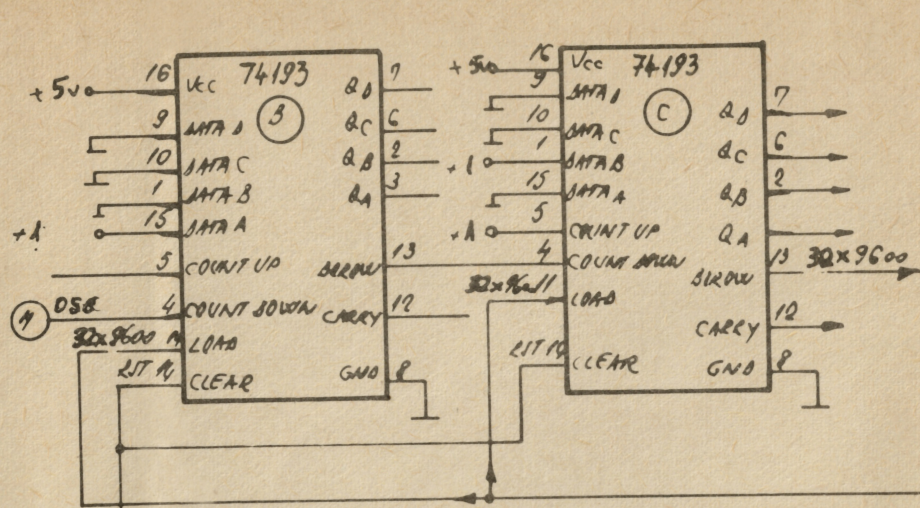 +5v
16
Vcc
74193
B
QD
7
9
DATA D
QC
6
10
DATA C
QB
2
1
DATA B
QA
3
+1
15
DATA A
5
COUNT UP
BORROW
13
M
OSC
4
COUNT DOWN
CARRY
12
32x9600
LOAD
RST 14
CLEAR
GND
8
+5v
16
Vcc
74193
C
9
DATA D
QD
7
10
DATA C
QC
6
+1
1
DATA B
QB
2
15
DATA A
QA
+1
5
COUNT UP
4
COUNT DOWN
BORROW
13
32x9600
32x9600
11
LOAD
CARRY
12
RST 14
CLEAR
GND
8